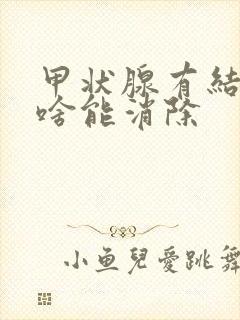 甲状腺有結
啥能消除
小魚兒愛跳舞